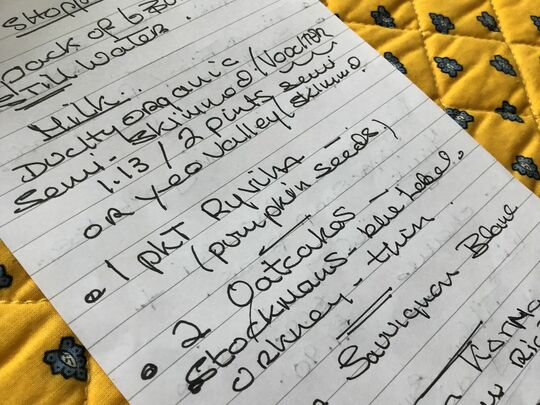 Pack of 6
Still Water.
Milk.
Duchy organic
Semi-skimmed/
1.13/2 pints semi
OR Yeo Valley/skimmed
• 1 PKT Ryvita
(pumpkin seeds)
• 2 Oatcakes
Stockmans - blue label.
Orkney - thin
Sauvignon Blanc
Korma